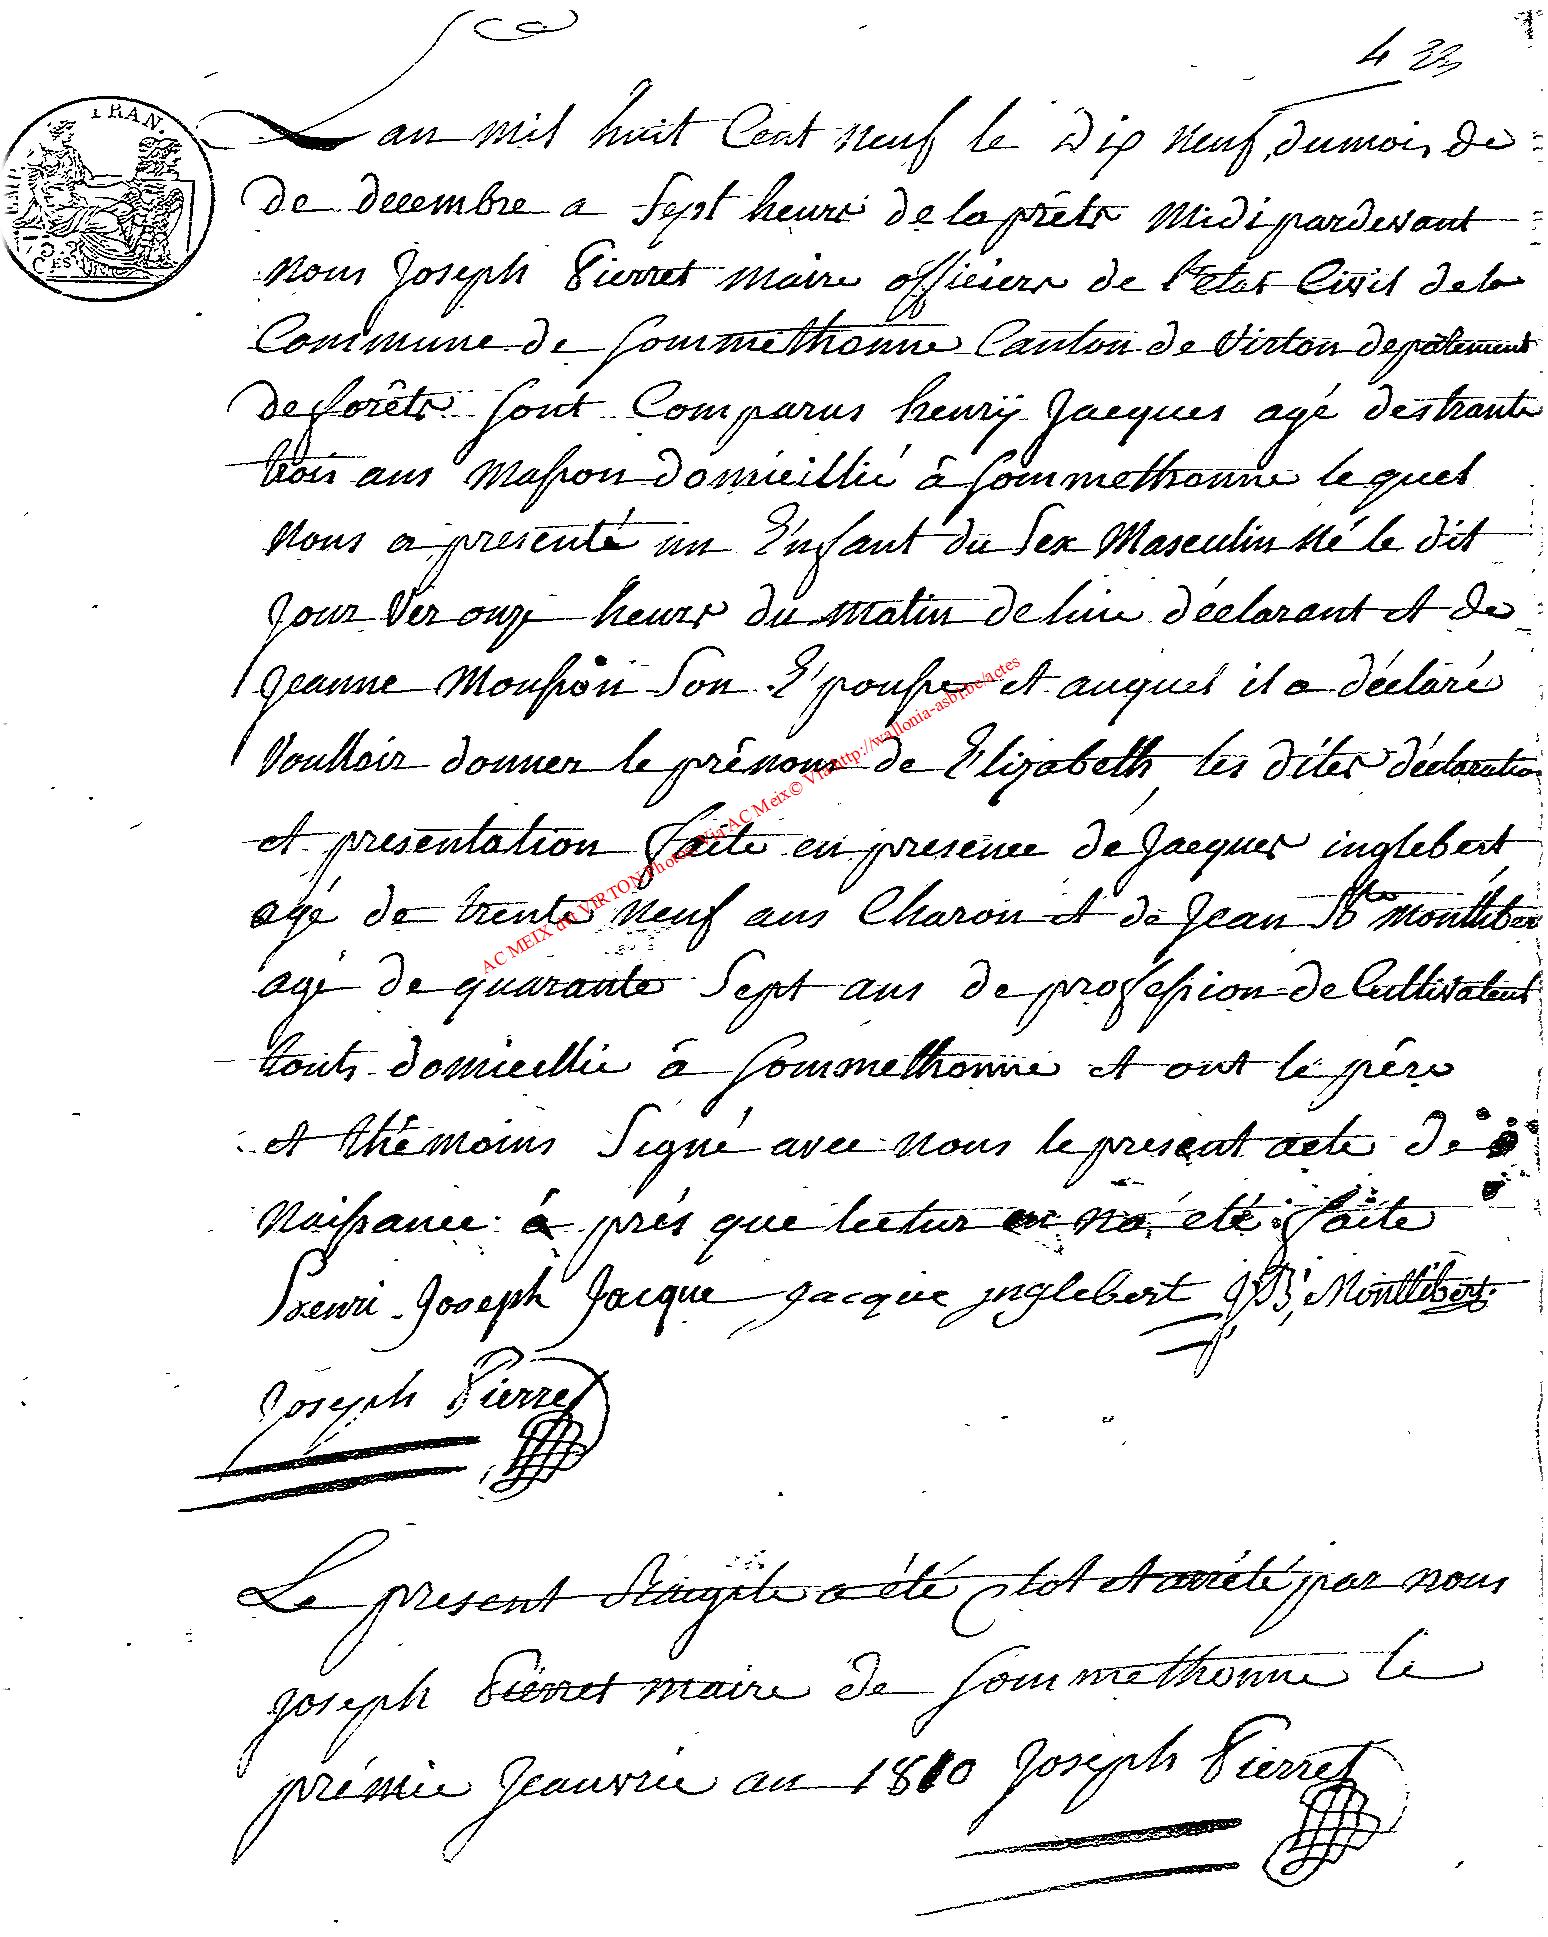 4 23
TRAN.
EMP.
L'an mil huit Cent neuf le dix neuf du mois de
de decembre a Sept heurs de la prêts Midi pardevant
nous Joseph Pierret maire officiers de l'etat Civil de la
Commune de Sommethonne Canton de Virton depâtement
de forêts sont Comparus henrÿ Jacques agé destrante
trois ans Masson domicillié à Sommethonne le quel
nous a presenté un Enfant du Sex Masculin né le dit
Jour Ver onze heurs du matin de luie déclarant et de
Jeanne Mousson Son Epousse et auquel il a déclaré
Voulloir donner le prénom de Elizabeth, les dites déclaration
et presentation faite en presence de Jacques inglebert
agé de trente neuf ans Charon et de Jean Bte montlibert
agé de quarante Sept ans de profession de Cultivateur
touts domicellie à Sommethonne et ont le pére
et thémoins Signé avec nous le present acte de
Naissance à prés que lectur en na été faite
Henri Joseph Jacque Jacque jnglebert J,B, Montlibert
Joseph Pierret
Le present Régile a été Clot et arrété par nous
joseph Pierret maire de Sommethonne le
prémie Jeanvrie an 1810 Joseph Pierret
AC MEIX dvt VIRTON Photos Via AC Meix© Via http://wallonia-asbl.be/actes